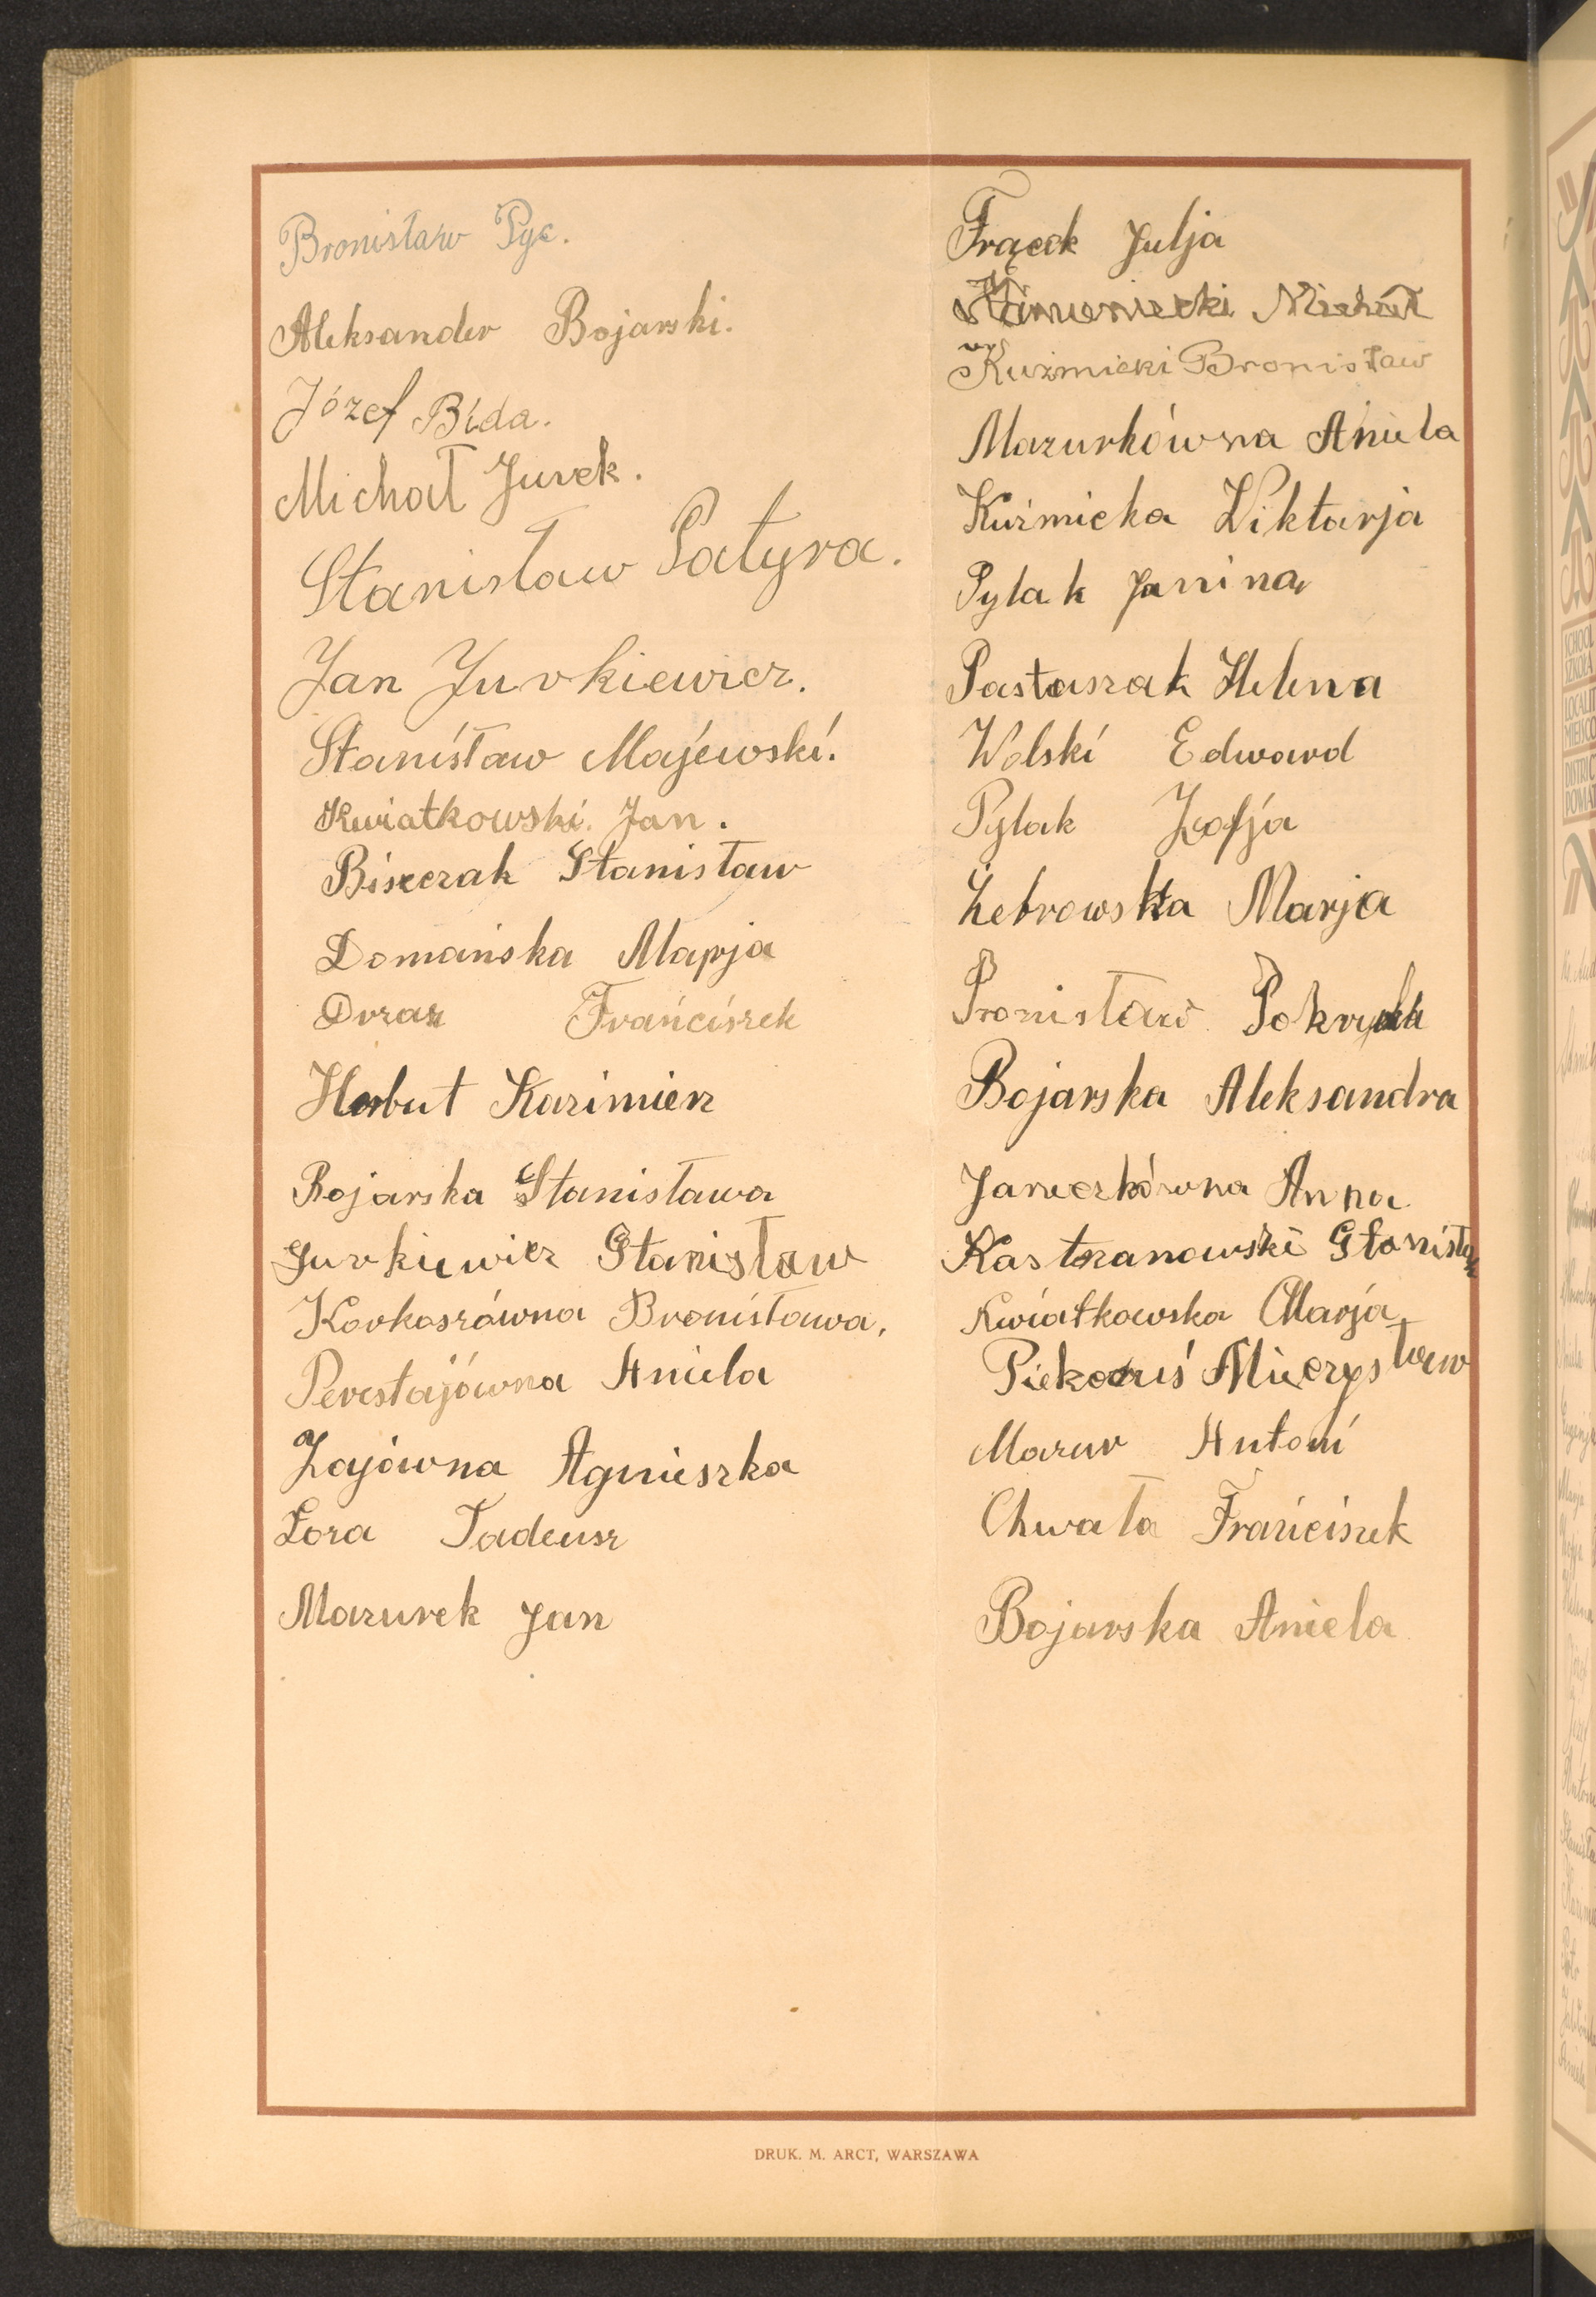 Bronisław Pyc.
Aleksander Bojarski.
Józef Bida.
Michał Jurek.
Stanisław Patyra.
Jan Jurkiewicz.
Stanisław Majewski.
Kwiatkowski. Jan.
Biszczak Stanisław
Domańska Marja
Draz Frańciszek
Herbut Kazimierz
Bojarska Stanisława
Jurkiewicz Stanisław
Korkoszówna Bronisława,
Perestajówna Aniela
Zajówna Agnieszka
Łoza Tadeusz
Mazurek Jan
Frącek Julja
Michał
Kuźmicki Bronisław
Mazurkówna Aniela
Kuźmicka Wiktarja
Pylak Janina
Pastuszak Helena
Wolski Edward
Pylak Zofja
Żebrowska Marja
Bronisław
Bojarska Aleksandra
Janeczkówna Anna
Kastrzanowski Stanisław
Kwiatkowska Marja
Piekaruś Mieczysław
Mazur Antoni
Chwała Frańciszek
Bojarska Aniela
DRUK. M. ARCT, WARSZAWA
SCHOOL
SZKOŁA